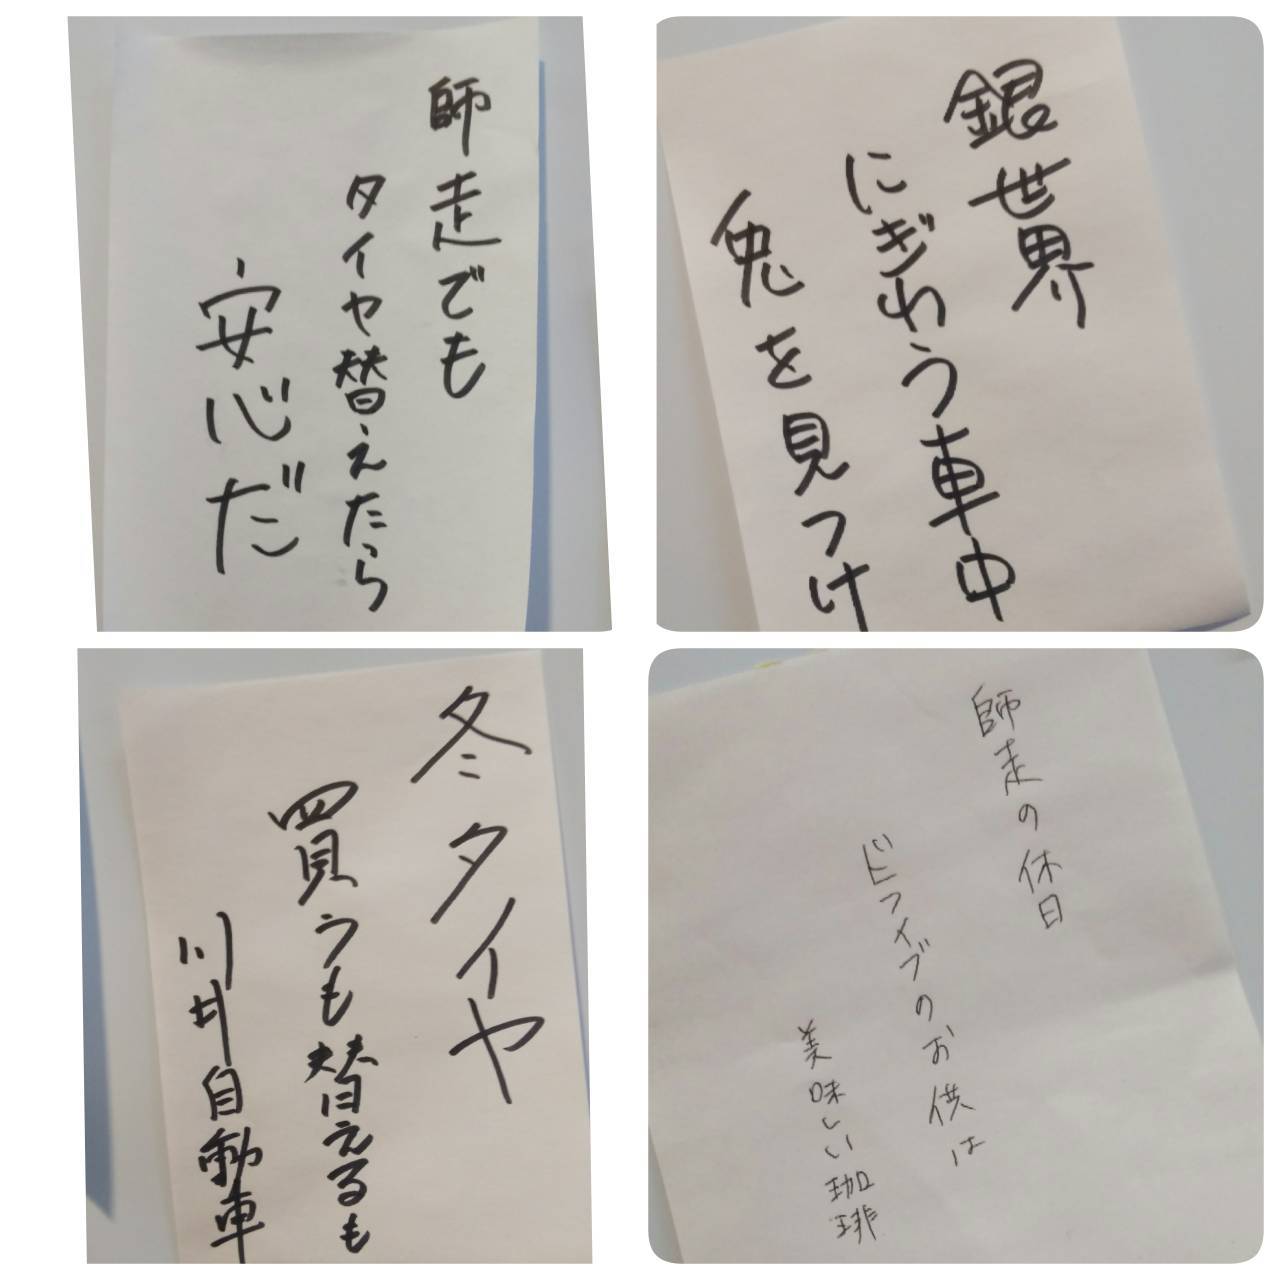 師走でも
タイヤ替えたら
安心だ
銀世界
にぎわう車中
兎を見つけ
冬タイヤ
買うも替えるも
川井自動車
師走の休日
ドライブのお供は
美味しい珈琲